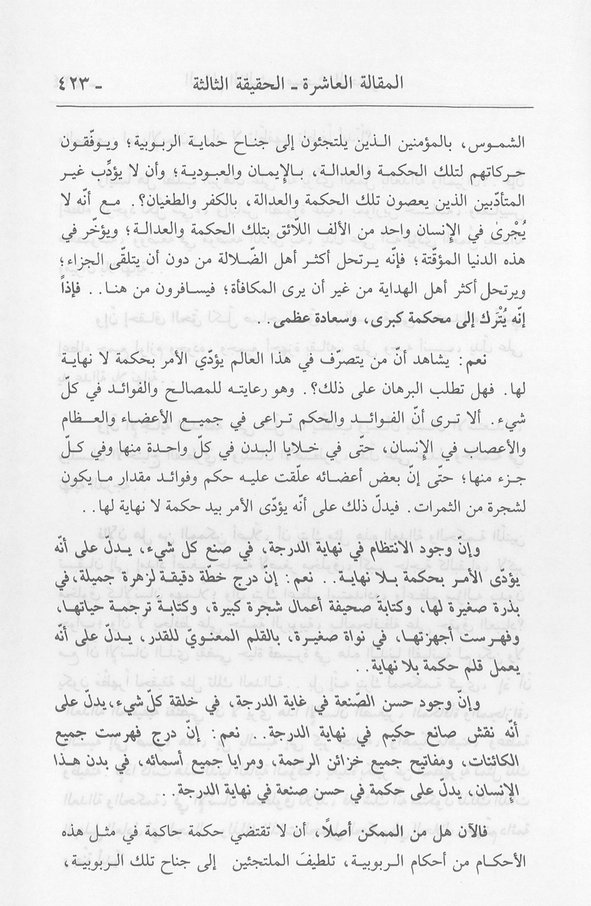 المقالة العاشرة ـ الحقيقة الثالثة ـ ٤٢٣
الشموس، بالمؤمنين الذين يلتجئون إلى جناح حماية الربوبية؛ ويوفّقون
حركاتهم لتلك الحكمة والعدالة، بالإيمان والعبودية؛ وأن لا يؤدِّب غير
المتأدّبين الذين يعصون تلك الحكمة والعدالة، بالكفر والطغيان؟. مع أنه لا
يُجْرىٰ في الإنسان واحد من الألف اللّائق بتلك الحكمة والعدالة؛ ويؤخّر في
هذه الدنيا المؤقّتة؛ فإنّه يرتحل أكثر أهل الضّلالة من دون أن يتلقّى الجزاء؛
ويرتحل أكثر أهل الهداية من غير أن يرى المكافأة؛ فيسافرون من هنا.. فإذاً
إنّه يُتْرَك إلى محكمة كبرى، وسعادة عظمى..
نعم: يشاهد أنّ من يتصرّف في هذا العالم يؤدّي الأمر بحكمة لا نهاية
لها. فهل تطلب البرهان على ذلك؟. وهو رعايته للمصالح والفوائد في كلّ
شيء. ألا ترى أنّ الفوائد والحكم تراعى في جميع الأعضاء والعظام
والأعصاب في الإنسان، حتّى في خلايا البدن في كلّ واحدة منها وفي كلّ
جزء منها؛ حتّى إنّ بعض أعضائه علّقت عليه حكم وفوائد مقدار ما يكون
لشجرة من الثمرات. فيدلّ ذلك على أنه يؤدّى الأمر بيد حكمة لا نهاية لها..
وإن وجود الانتظام في نهاية الدرجة، في صنع كل شيء، يدلّ على أنّه
يؤدى الأمر بحكمة بلا نهاية.. نعم: إنّ درج خطّة دقيقة لزهرة جميلة، في
بذرة صغيرة لها، وكتابة صحيفة أعمال شجرة كبيرة، وكتابةَ ترجمة حياتها،
وفهرست أجهزتها، في نواة صغيرة، بالقلم المعنويّ للقدر، يدلّ على أنّه
يعمل قلم حكمة بلا نهاية..
وإنّ وجود حسن الصّنعة في غاية الدرجة، في خلقة كلّ شيء، يدلّ على
أنّه نقش صانع حكيم في نهاية الدرجة.. نعم: إنّ درج فهرست جميع
الكائنات، ومفاتيح جميع خزائن الرحمة، ومرايا جميع أسمائه، في بدن هذا
الإنسان، يدلّ على حكمة في حسن صنعة في نهاية الدرجة..
فالآن هل من الممكن أصلًا، أن لا تقتضي حكمة حاكمة في مثل هذه
الأحكام من أحكام الربوبية، تلطيفَ الملتجئين إلى جناح تلك الربوبية،